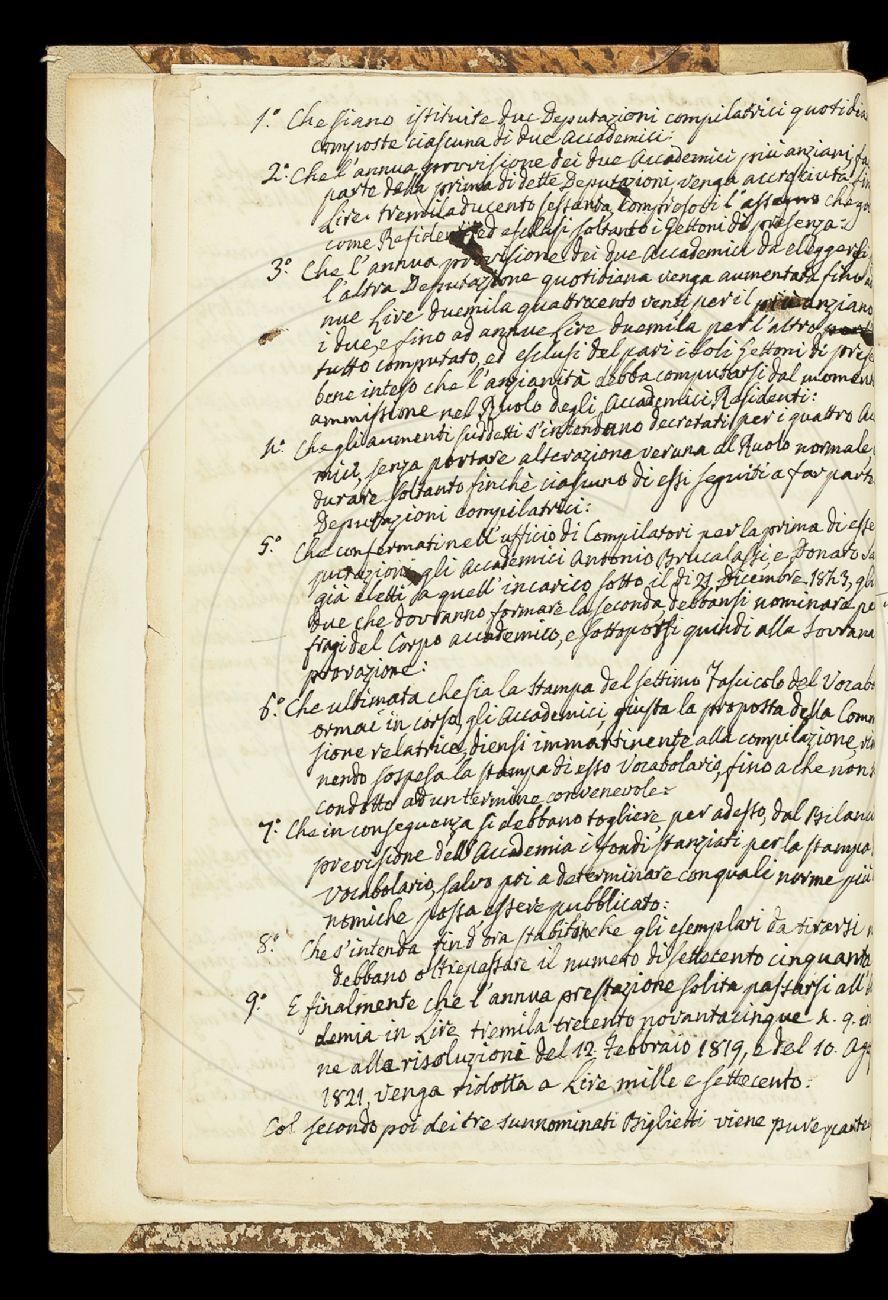 1.° Che siano istituite due Deputazioni compilatrici quotidia
composte ciascuna di due Accademici:
2.° Che l'annua provvisione dei due Accademici più anziani, fa
parte della prima di dette Deputazioni, venga accresciuta fin
Lire tremiladucento sessanta, compresovi l'assegno che go
come Residenti, ed esclusi soltanto i Gettoni di presenza:
3.° Che l'annua provvisione dei due Accademici da eleggersi p
l'altra Deputazione quotidiana venga aumentata fino ad
nue Lire duemila quattrocento venti per il più anziano
i due, e fino ad annue Lire duemila per l'altro
tutto computato, ed esclusi del pari i soli Gettoni di prese
bene inteso che l'anzianità debba computarsi dal moment
ammissione nel Ruolo degli Accademici Residenti:
4.° Che gli aumenti suddetti s'intendano decretati per i quattro Ac
mici, senza portare alterazione veruna al Ruolo normale,
durare soltanto finchè ciascuno di essi seguiti a far parte
Deputazioni compilatrici:
5.° Che confermati nell'ufficio di Compilatori per la prima di esse
putazioni gli Accademici Antonio Brucalassi, e Donato Sa
già eletti a quell'incarico sotto il dì 21 Dicembre 1843, gli
due che dovranno formare la seconda debbansi nominare pe
fragi del Corpo accademico, e sottoporsi quindi alla Sovrana
provazione:
6.° Che ultimata che sia la stampa del settimo Fascicolo del Vocab
ormai in corso, gli Accademici, giusta la proposta della Comm
sione relatrice, diensi immantinente alla compilazione, ri
nendo sospesa la stampa di esso Vocabolario, fino a che non s
condotto ad un termine convenevole:
7.° Che in conseguenza si debbano togliere, per adesso, dal Bilanc
previsione dell'Accademia i fondi stanziati per la stampa
Vocabolario, salvo poi a determinare con quali norme più
nomiche possa essere pubblicato:
8.° Che s'intenda fin d'ora stabilito che gli esemplari da tirarsi n
debbano oltrepassare il numero di settecento cinquanta
9.° E finalmente che l'annua prestazione solita passarsi all'
demia in Lire tremila trecento novantacinque
ne alle risoluzioni del 12 Febbraio 1819, e del 10. Ag
1821, venga ridotta a Lire mille e settecento:
Col secondo poi dei tre sunnominati Biglietti viene pure parte